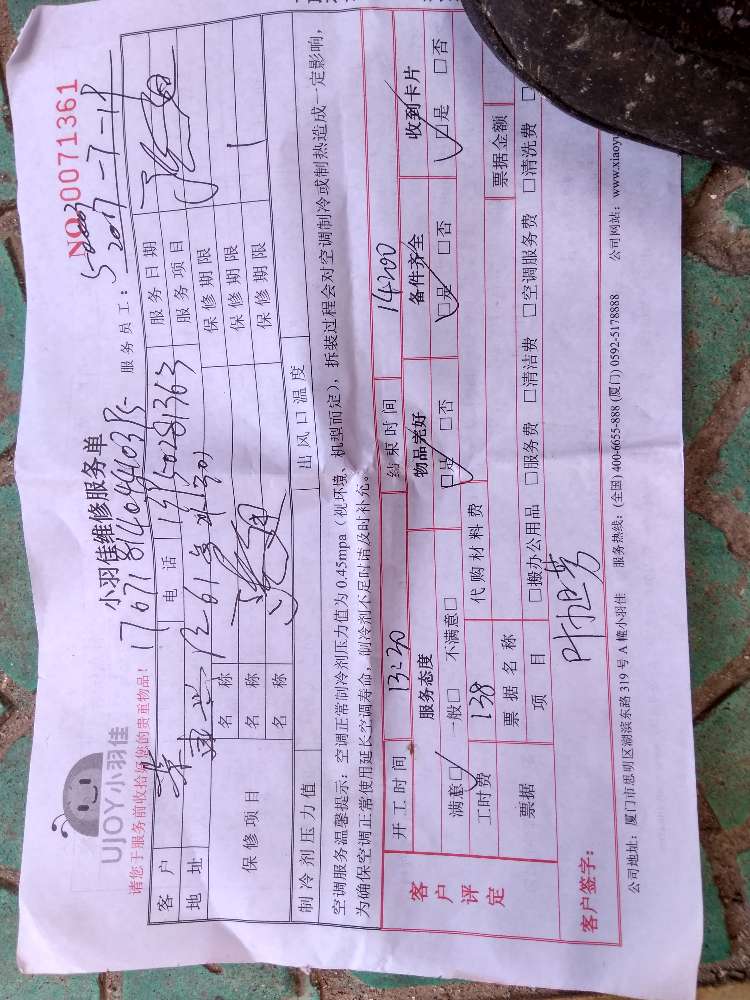 UJOY小羽佳
小羽佳维修服务单
NO 0071361
请您于服务前收拾好您的贵重物品!
服务员工:
客户 电话 服务日期 2017-7-18
地址 服务项目
保修项目 名称 保修期限
名称 保修期限
名称 保修期限
制冷剂压力值 出风口温度
空调服务温馨提示:空调正常制冷剂压力值为0.45mpa(视环境、机型而定),拆装过程会对空调制冷或制热造成一定影响,
为确保空调正常使用延长空调寿命,制冷剂不足时请及时补充。
客户评定
开工时间 13:30 结束时间 14:00
服务态度 物品完好 备件齐全 收到卡片
满意□ 一般□ 不满意□ □是 □否 □是 □否 □是 □否
工时费 138 代购材料费
票据 票据名称 票据金额
项目 □搬办公用品 □服务费 □清洁费 □空调服务费 □清洗费
客户签字:
公司地址:厦门市思明区湖滨东路319号A幢小羽佳 服务热线:(全国)400-6655-888 (厦门)0592-5178888 公司网站:www.xiaoyu